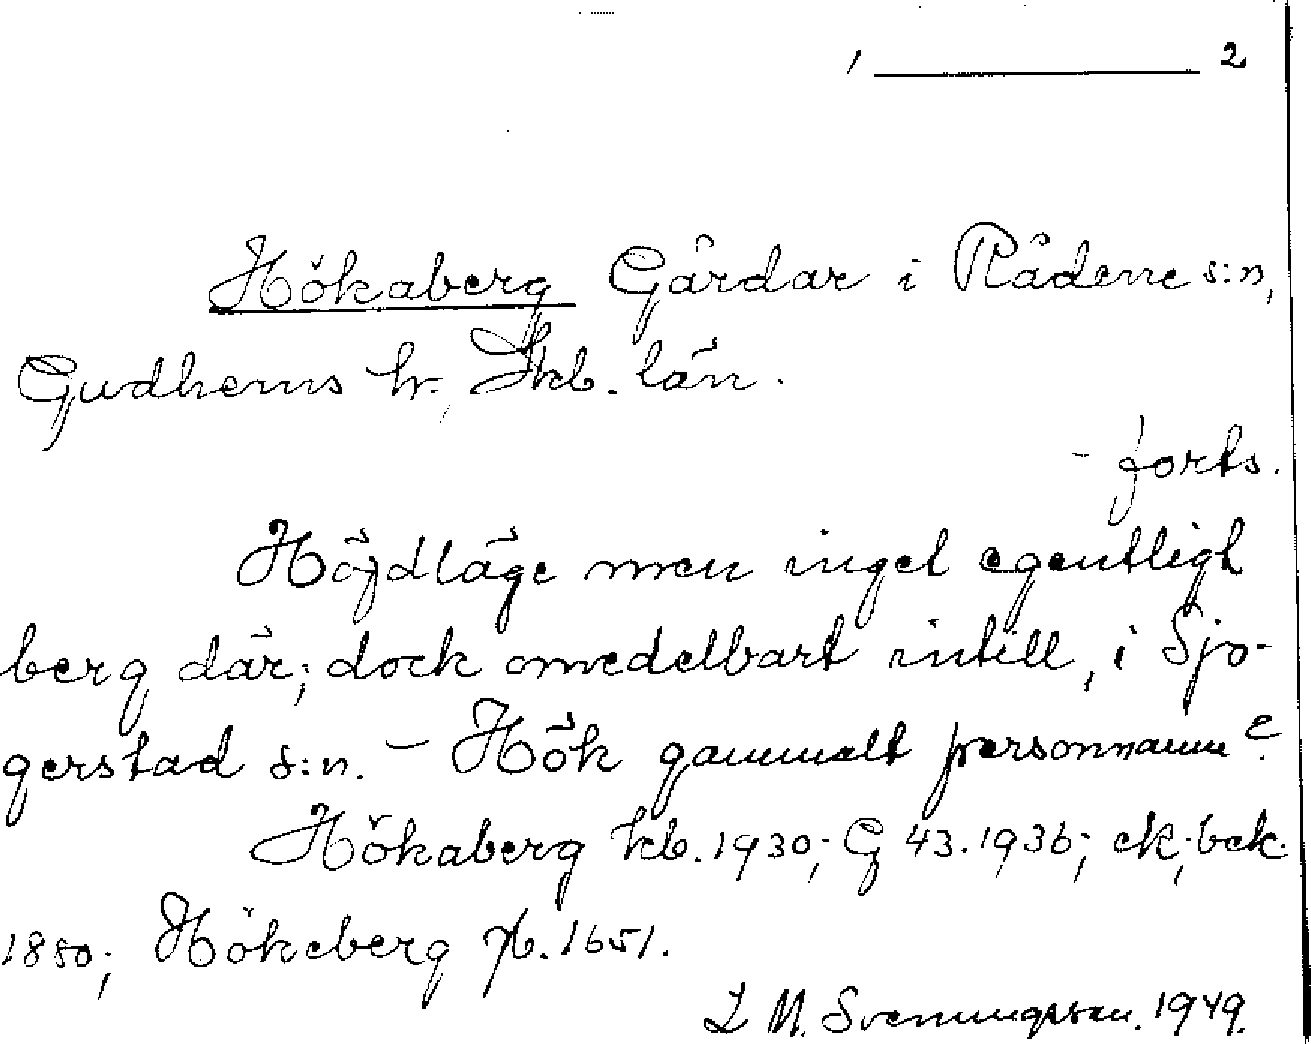 , 2
Hökaberg Gårdar i Rådene s:n,
Gudhems hr., Skb. län.
- forts.
Höjdläge men inget egentligt
berg där; dock omedelbart intill, i Sjo-
gerstad s:n. - Hök gammalt personnamn?
Hökaberg kb. 1930; G 43. 1936; ek; bek.
1880; Hökeberg jb. 1651.
L M. Svenungsson. 1949.